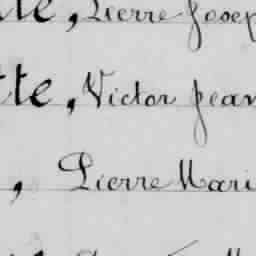 tte, Pierre Josep
tte, Victor Jean
, Pierre Mari